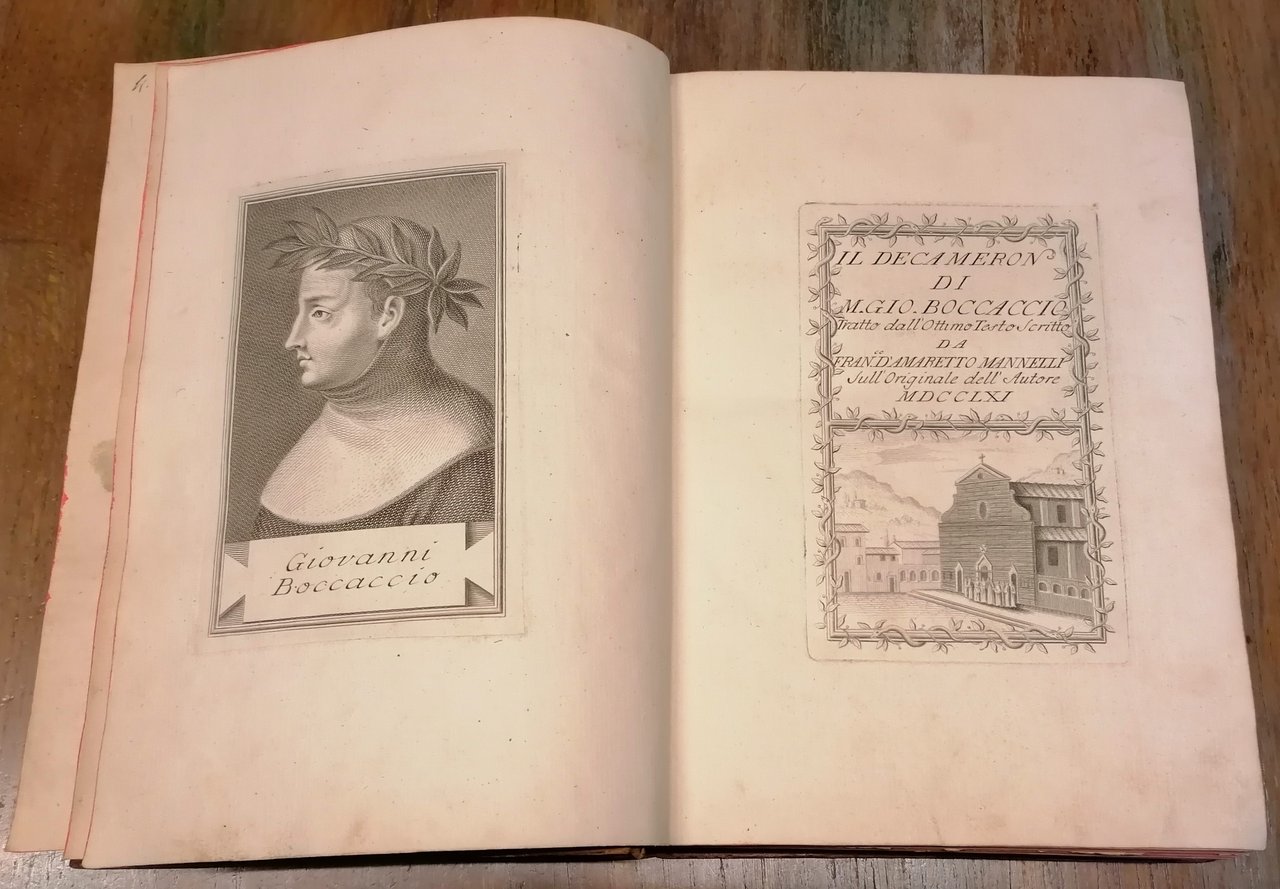 Giovanni
Boccaccio
IL DECAMERON
DI
M. GIO. BOCCACCIO
Tratto dall'Ottimo Testo Scritto
DA
FRAN.co D'AMARETTO MANNELLI
Sull'Originale dell'Autore
MDCCLXI